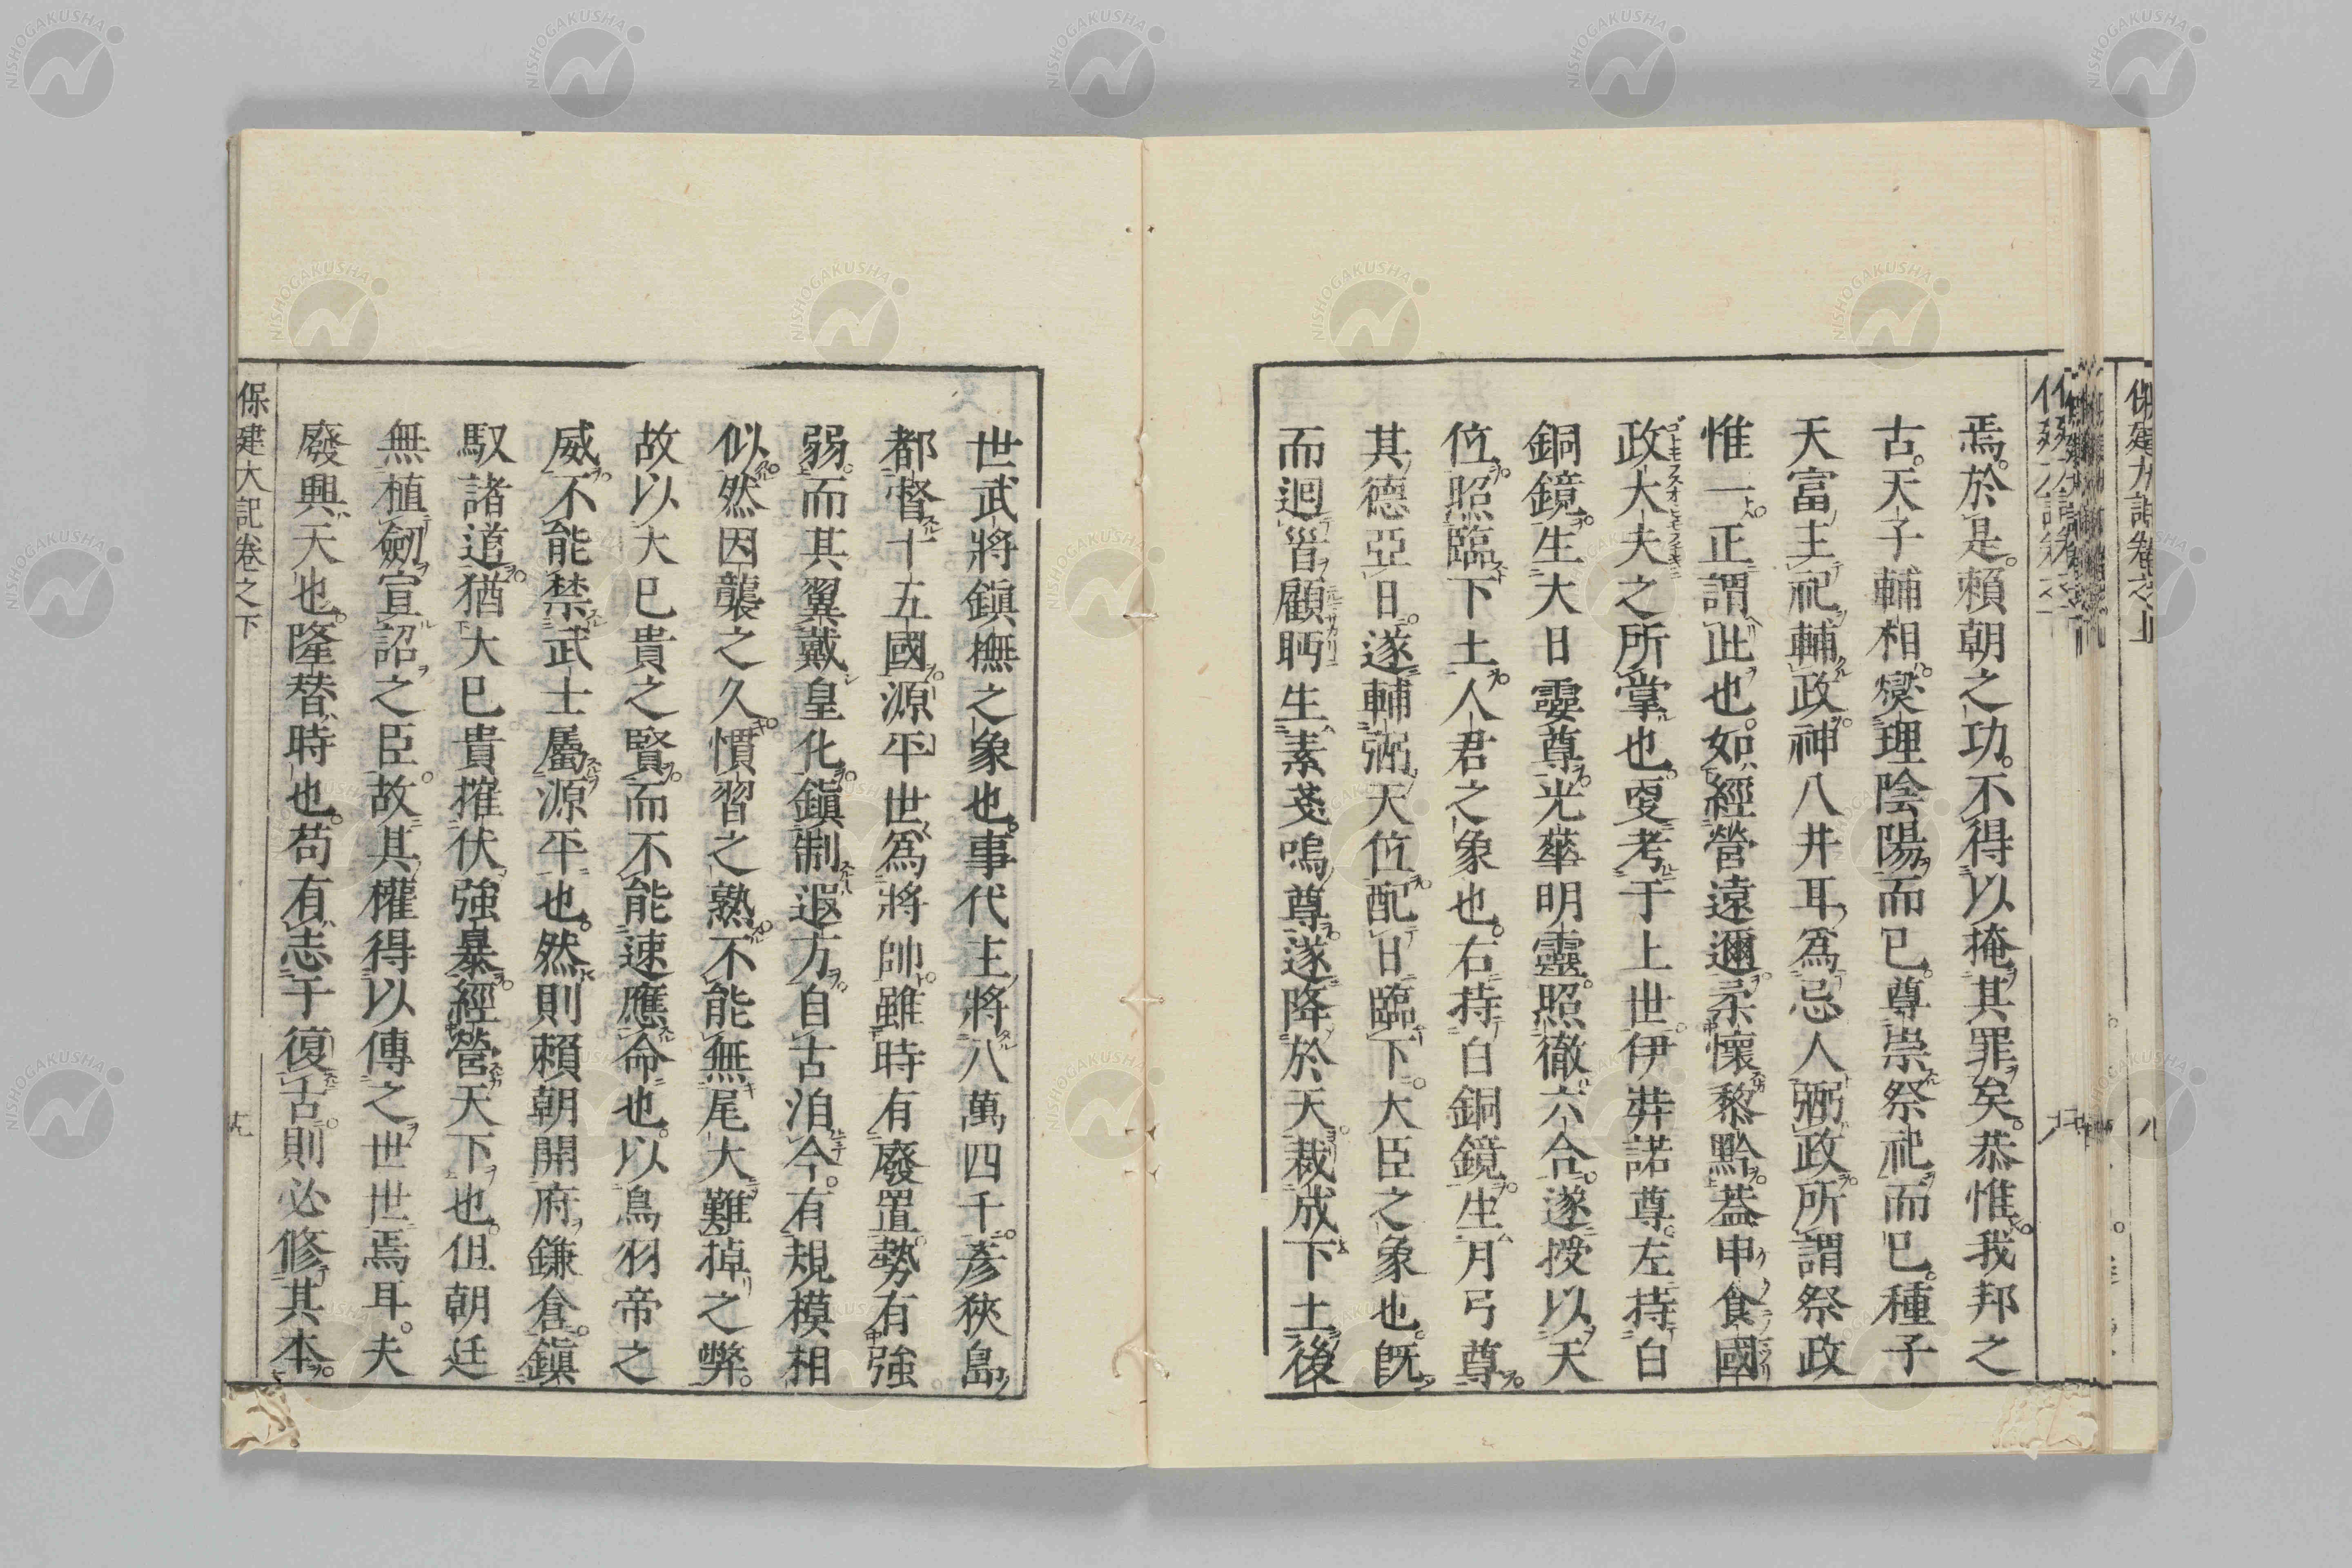 焉於是賴朝之功不得以掩其罪矣恭惟我邦之
古天子輔相燮理陰陽而已尊崇祭祀而已種子
天富主祀輔政神八井耳爲忌人弼政所謂祭政
惟一正謂此也如經營遠邇柔懷黎黔葢申食國
政大夫之所掌也夐考于上世伊弉諾尊左持白
銅鏡生大日孁尊光華明靈照徹六合遂授以天
位照臨下土人君之象也右持白銅鏡生月弓尊
其德亞日遂輔弼天位配日臨下大臣之象也既
而迴首顧眄生素戔嗚尊遂降於天裁成下土後
世武將鎮撫之象也事代主將八萬四千彥狹島
都督十五國源平世爲將帥雖時有廢置勢有強
弱而其翼戴皇化鎮制遐方自古洎今有規模相
似然因襲之久慣習之熟不能無尾大難掉之弊
故以大已貴之賢而不能速應命也以鳥羽帝之
威不能禁武士屬源平也然則賴朝開府鎌倉鎮
馭諸道猶大已貴摧伏強暴經營天下也但朝廷
無植劒宣詔之臣故其權得以傳之世世焉耳夫
廢興天也隆替時也苟有志于復古則必修其本
保建大記卷之下
NISHOGAKUSHA